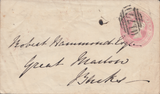 Robert Hammond Esqr
Great Marlow
Bucks